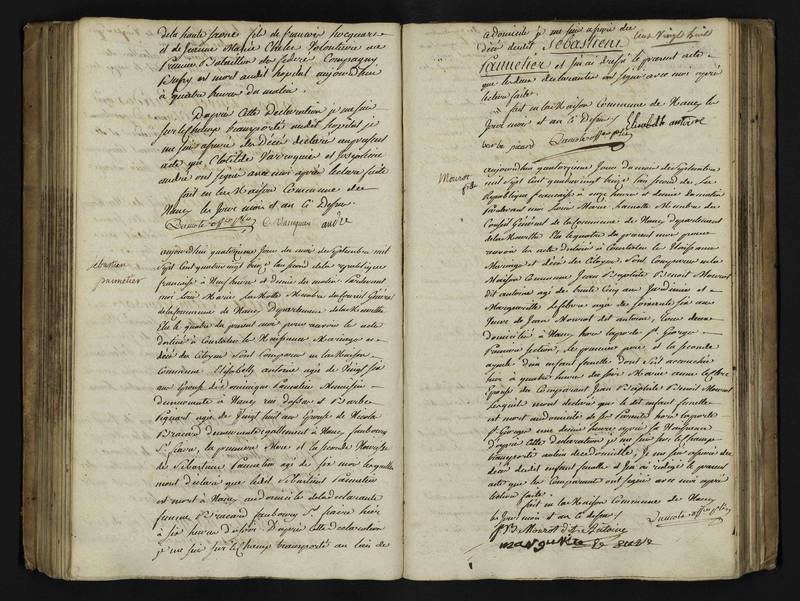 de la haute saone fils de francois Jocquare
et de Jeanne Marie Chelié Volontaire au
Premier Bataillon de
est mort audit hopital aujourdhuy
à quatre heures du matin.
D'après cette déclaration je me suis
sur le champ transporté audit hopital je
me suis assuré du Décès déclaré
acte que Clotilde et Josephine
andré ont signé avec moi après lecture faite
fait en la Maison Commune de
Nancy les Jour mois et an Cy Dessus.
andre
Sebastien
paumetier
aujourdhui quatorzieme Jour du mois de Septembre mil
Sept Cent quatre vingt treize l'an second de la republique
francaise à Neuf heures et demie du matin. Pardevant
moi Louis Marie Lamotte Membre du Conseil General
de la Commune de Nancy Departement de la Meurthe
Elu le quatre du present mois pour recevoir les actes
destinés à Constater les Naissances Mariages et
décès des Citoyens Sont Comparus en la Maison
Commune Elisabeth antoine agée de Vingt six
ans Epouse de Dominique Paumetier
demeurante à Nancy rue et Barbe
Piquart agée de Vingt huit ans Epouse de Nicolas
Bracard demeurante egallement à Nancy faubourg
St. fiacre, la premiere Mere et la seconde Nourrice
de Sebastien Paumetier agé de six mois lesquelles
mont déclaré que ledit Sebastien Paumetier
est mort à Nancy au domicile de la declarante
femme Bracard faubourg St. fiacre hier
à six heures du soir. D'après cette declaration
je me suis sur le champ transporté au lieu de
cent Vingt huit
ce domicile je me suis assuré du
décès dudit Sebastien
Paumetier et j'en ai dressé le present acte
que les deux declarantes ont signé avec moi après
lecture faite.
fait en la Maison Commune de Nancy les
Jour mois et an Cy Dessus / Elisabeth antoine
barbe picard
Mourot
fille
aujourdhuy quatorzieme Jour du mois de Septembre
mil sept Cent quatre vingt treize l'an second de la
Republique francaise à onze heures et demie du matin
Pardevant moi Louis Marie Lamotte Membre du
Conseil Général de la Commune de Nancy departement
de la Meurthe Elu le quatre du present mois pour
recevoir les actes destinés à Constater les Naissances
Mariages et décès des Citoyens, Sont Comparus en la
Maison Commune Jean Baptiste Benoit Mourot
dit antoine agé de trente Cinq ans Jardinier et
Marguerite Lefebvre agée de soixante six ans
Veuve de Jean Mourot dit antoine, tous deux
domiciliés à Nancy hors la porte St. George
Premiere section, le premier pere et la seconde
ayeule d'un enfant femelle dont s'est accouchée
hier à quatre heures du soir Marie anne
Epouse du Comparant Jean Baptiste Benoit Mourot
Lesquels mont declaré que le dit enfant femelle
est mort au domicile de ses Parents hors la porte
St George une demie heure après sa Naissance
d'après cette declaration je me suis sur le champ
transporté audit domicille, Je me suis assuré du
décès dudit enfant femelle et J'en ai redigé le present
acte que les Comparants ont signé avec moi après
lecture faite.
fait en la Maison Commune de Nancy
les Jour mois et an Cy dessus /
J B Mourot dit Antoine
marguerite